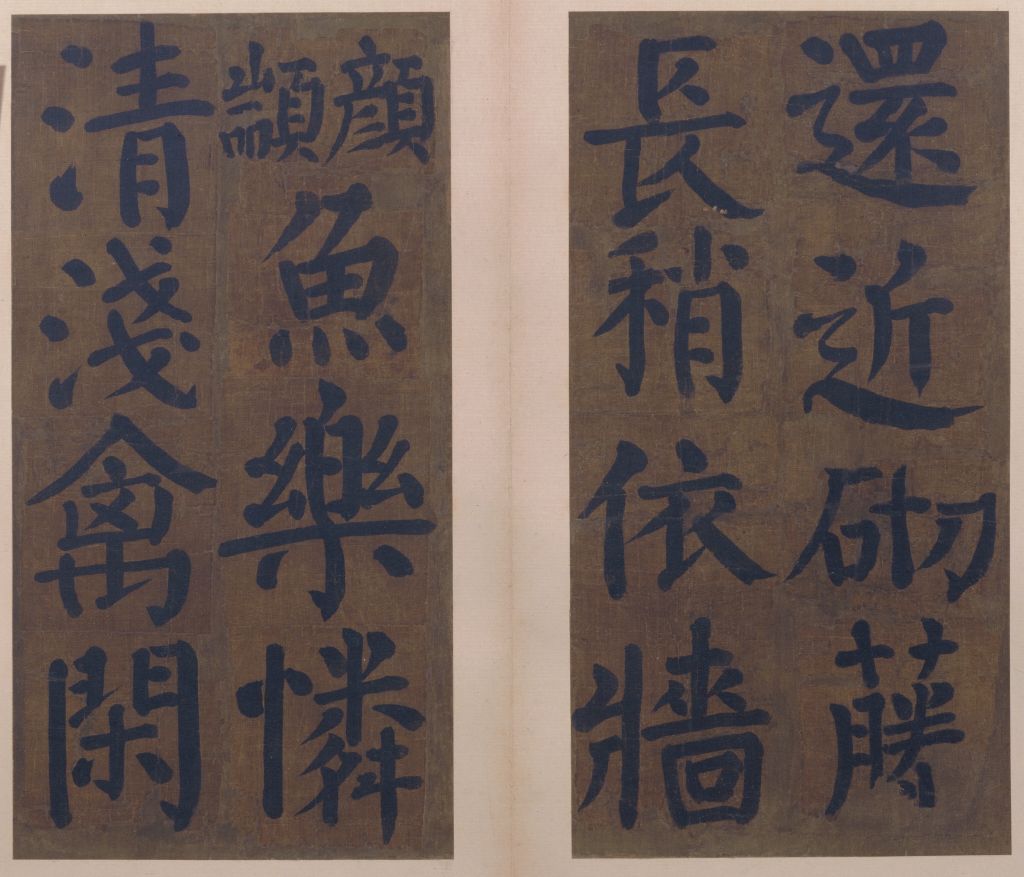 還近砌藤
長稍依牆
顏顓
魚樂憐
清淺禽閑